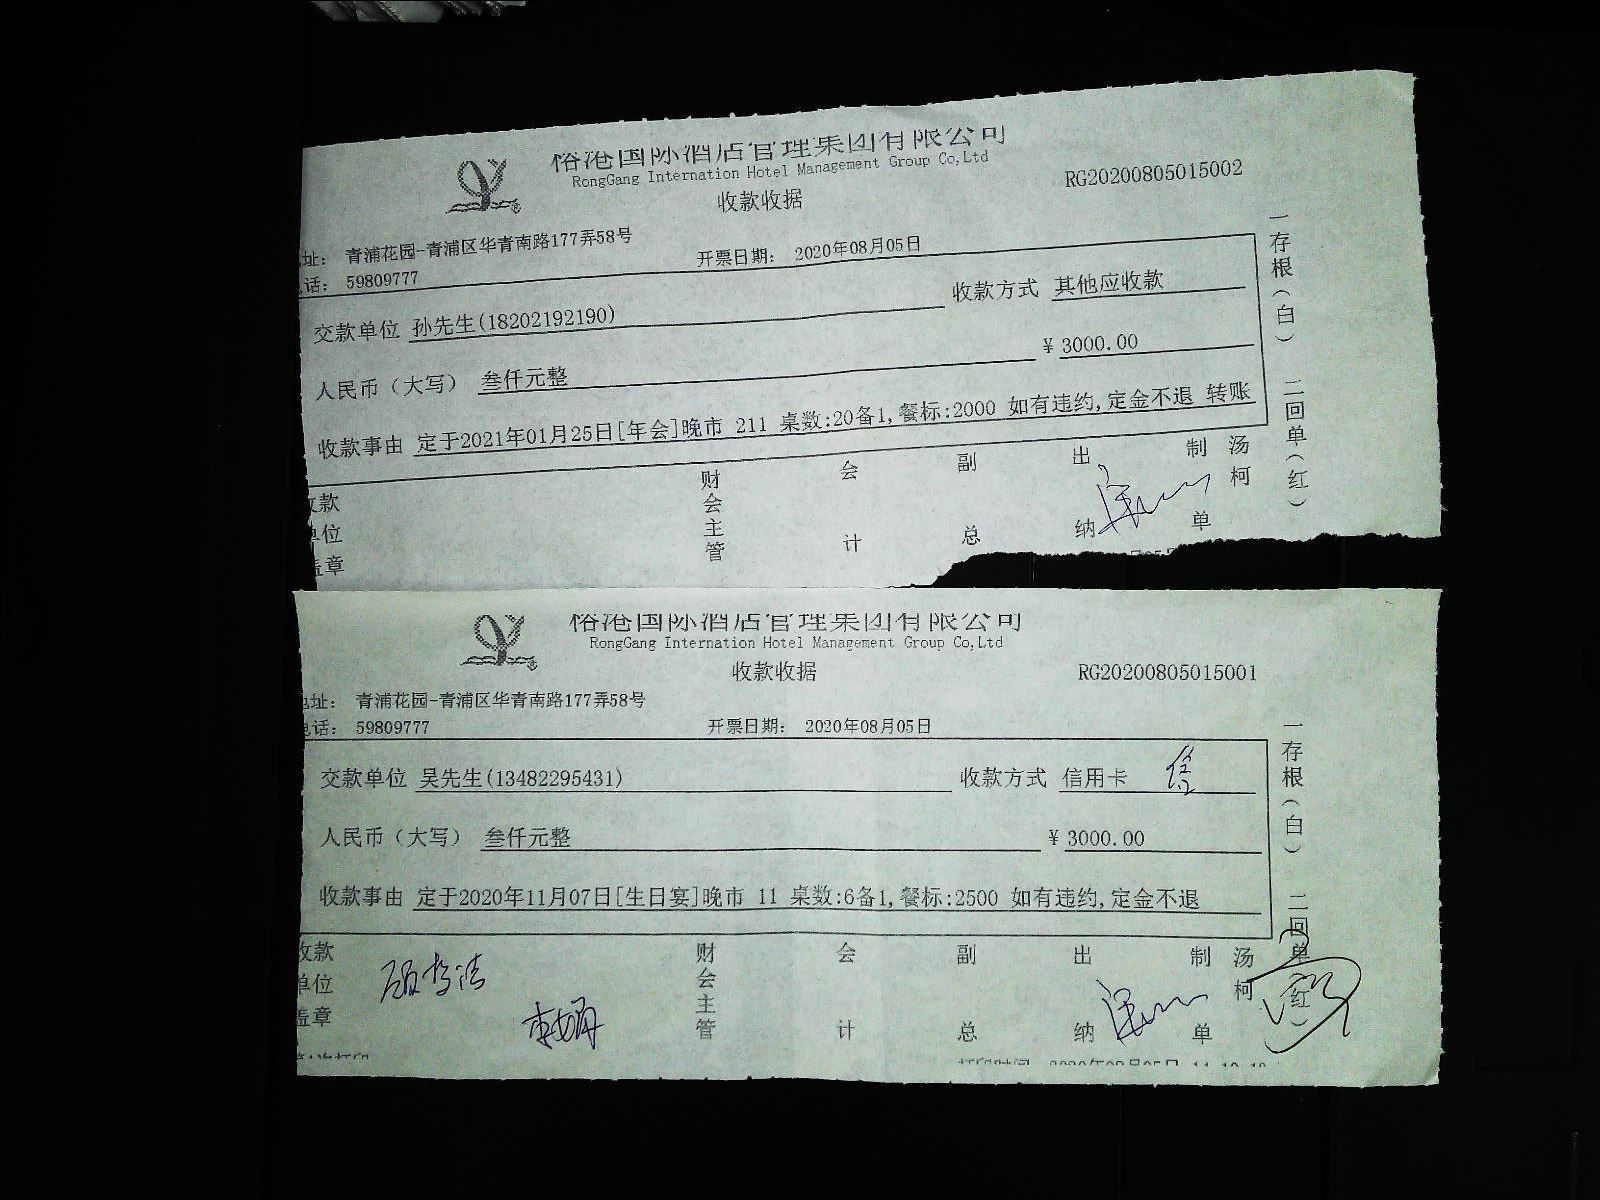 俗港国际酒店管理集团有限公司
RongGang Internation Hotel Management Group Co,Ltd
收款收据
RG20200805015002
址： 青浦花园-青浦区华青南路177弄58号
话： 59809777
开票日期： 2020年08月05日
交款单位 孙先生(18202192190)
收款方式 其他应收款
人民币（大写） 叁仟元整
¥ 3000.00
收款事由 定于2021年01月25日[年会]晚市 211 桌数:20备1,餐标:2000 如有违约,定金不退 转账
收款单位盖章
财会主管
会计
副总
出纳
制单
汤柯
一存根（白） 二回单（红）
俗港国际酒店管理集团有限公司
RongGang Internation Hotel Management Group Co,Ltd
收款收据
RG20200805015001
地址： 青浦花园-青浦区华青南路177弄58号
电话： 59809777
开票日期： 2020年08月05日
交款单位 吴先生(13482295431)
收款方式 信用卡 信
人民币（大写） 叁仟元整
¥ 3000.00
收款事由 定于2020年11月07日[生日宴]晚市 11 桌数:6备1,餐标:2500 如有违约,定金不退
收款单位盖章
财会主管
会计
副总
出纳
制单
汤柯
一存根（白） 二回单（红）